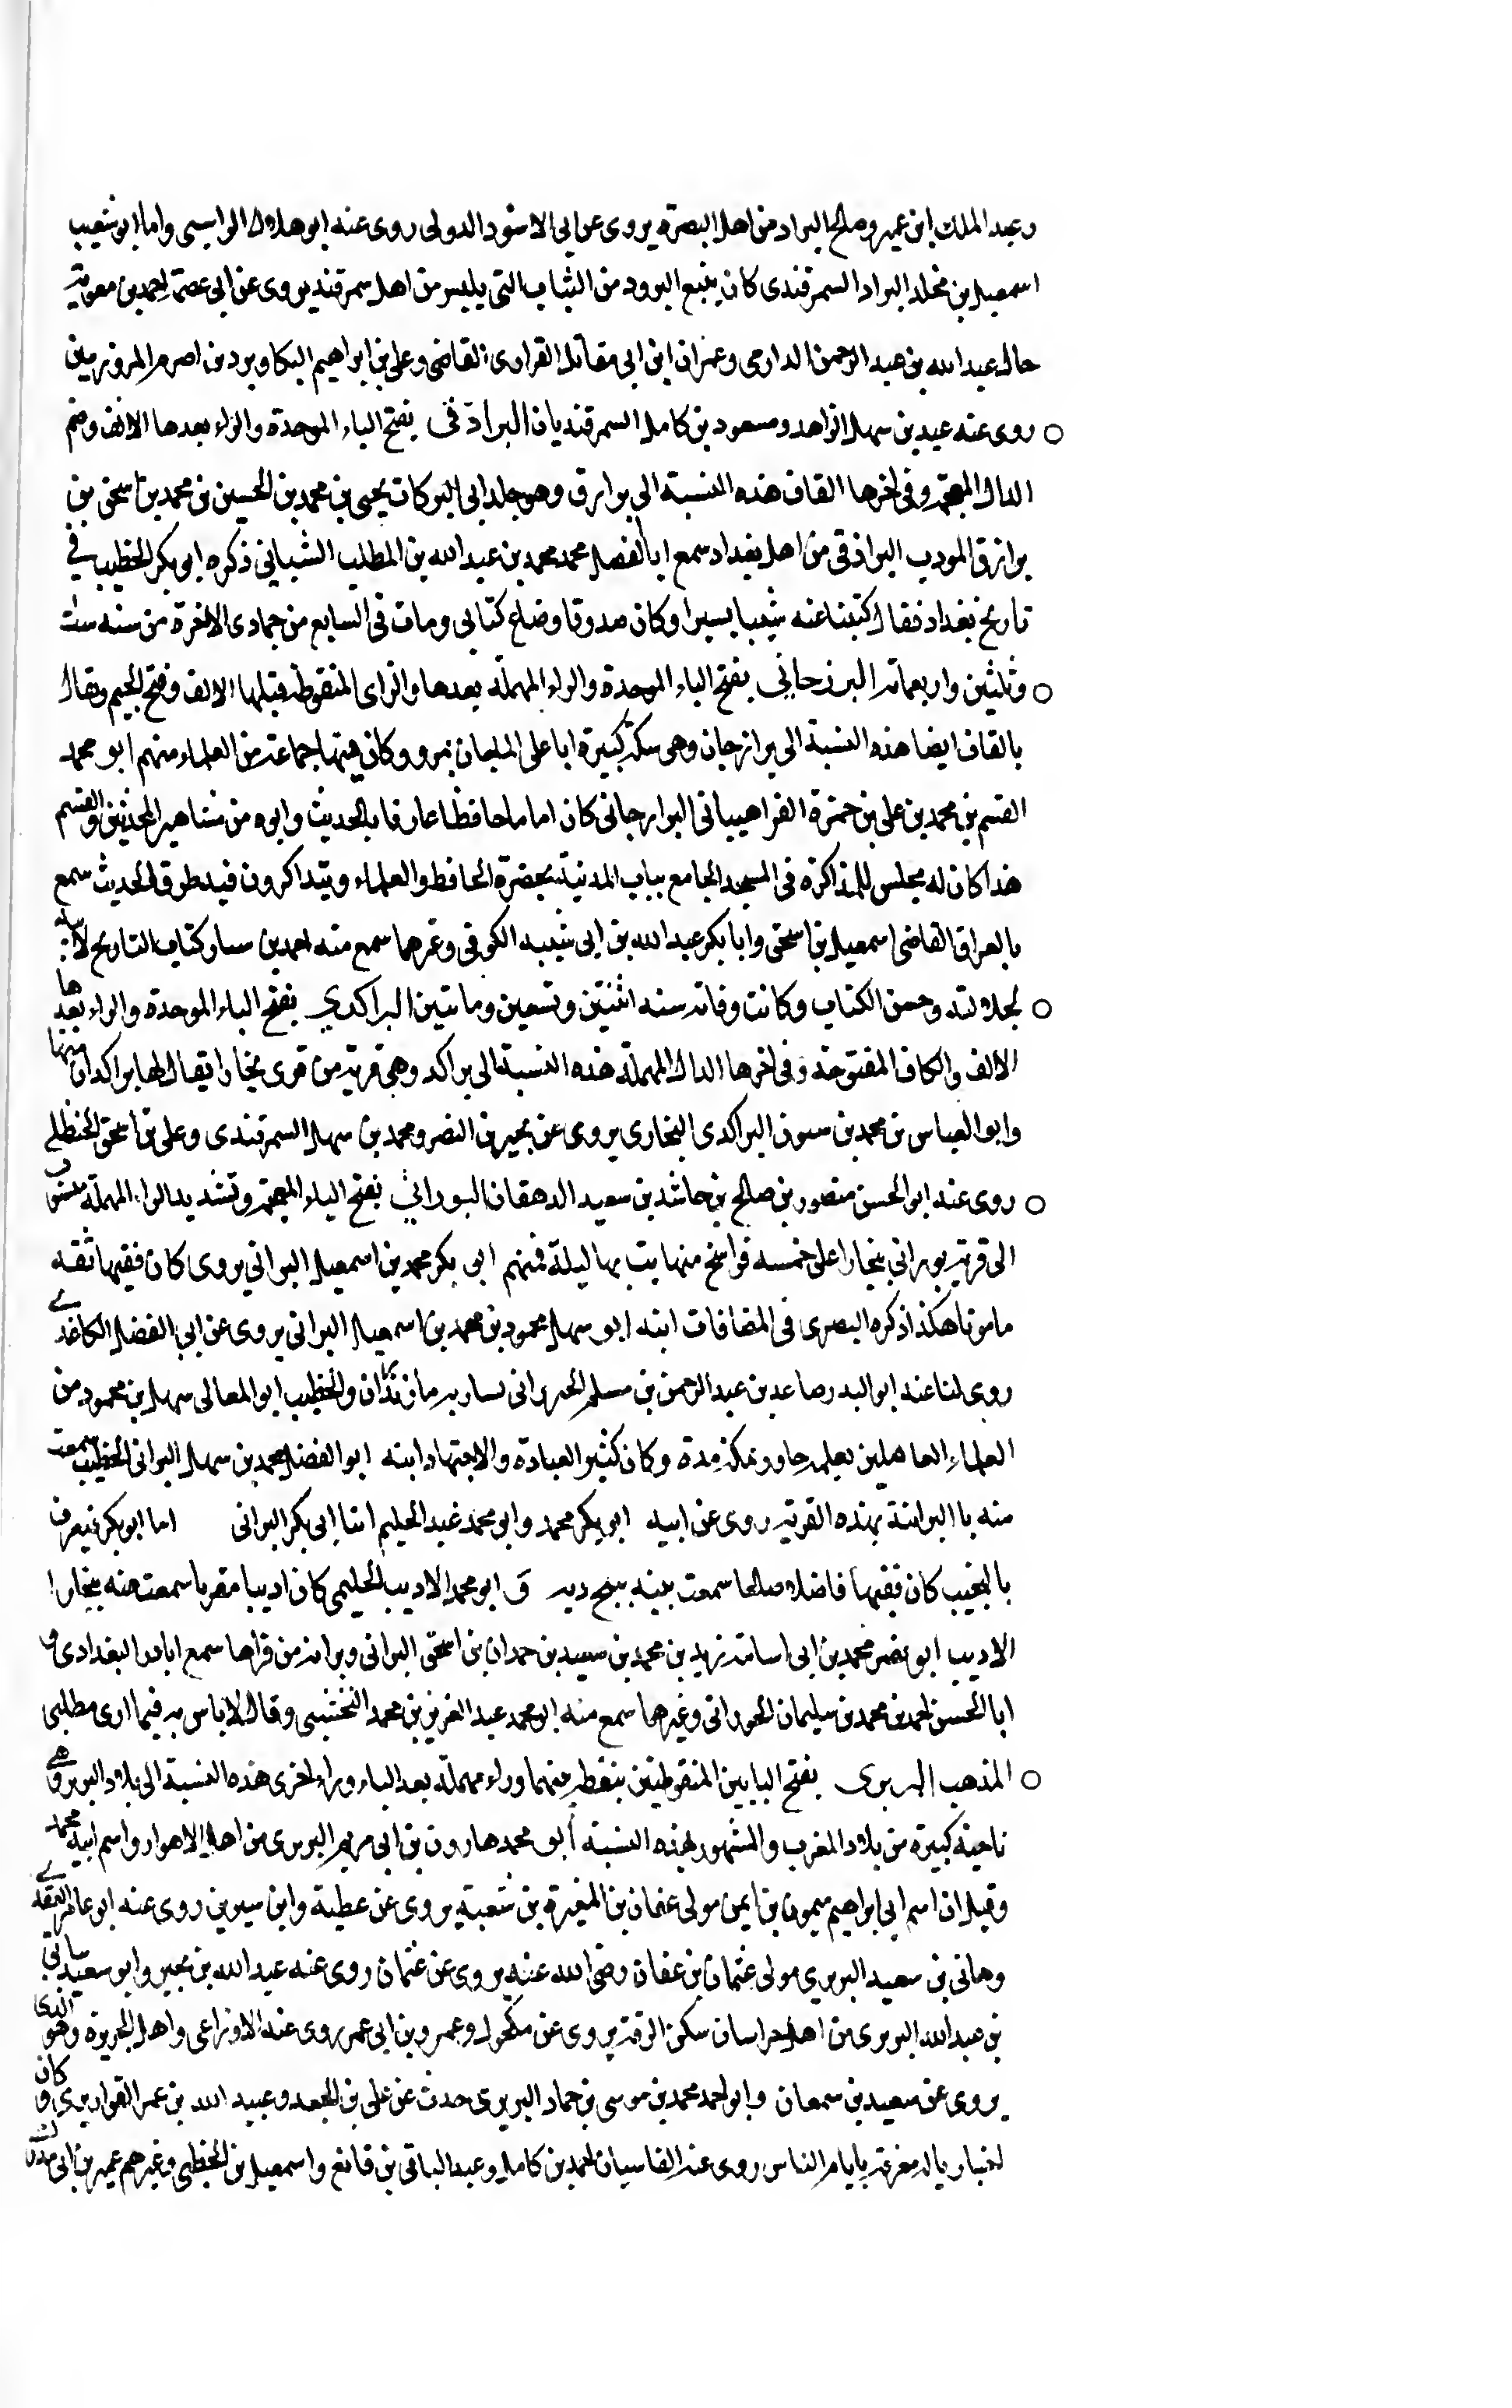 وعبد الملك ابن عمير وصالح البراد من اهل البصرة يروى عن ابى الاسود الدولى روى عنه ابو هلال الراسبى واما ابو شعيب
اسمعيل بن مخلد البراد السمرقندى كان يبيع البرود من الثياب التى يلبس من اهل سمرقند يروى عن ابى عصمة احمد بن معوية
حال عبد الله بن عبد الرحمن الدارمى وعمران ابن ابى مقاتل القراوى القاضى وعلى بن ابراهيم البكا وبرد بن اصرم المروزيين
روى عنه عبد بن سهل الزاهد ومسعود بن كامل السمرقنديان البراذقى بفتح الباء الموحدة والراء بعدها الالف وضم
الذال المعجمة وفى اخرها القاف هذه النسبة الى برازق وهو جد ابى البركات يحيى بن محمد بن الحسين بن محمد بن اسحق بن
برازق المودب البراذقى من اهل بغداد سمع ابا الفضل محمد محمد بن عبد الله بن المطلب الشيبانى ذكره ابو بكر الخطيب فى
تاريخ بغداد فقال كتبنا عنه شيبا يسيرا وكان صدوقا وضاع كتابى ومات فى السابع من جمادى الاخرة من سنه ست
وثلثين واربعماية البرزجانى بفتح الباء الموحدة والراء المهملة بعدها والزاى المنقوطة قبلها الالف وفتح الجيم ويقال
بالقاف ايضا هذه النسبة الى برازجان وهى سكة كبيرة اباعلى الملجان بمرو وكان فيها جماعة من العلماء منهم ابو محمد
القسم بن محمد بن على بن حمزة الفراهينانى البرارجانى كان اماما حافظا عارفا بالحديث وابوه من مشاهير المحدثين والقسم
هذا كان له مجلس للمذاكرة فى المسجد الجامع بباب المدينة بحضرة الحافظ والعلماء ويتذاكرون فيه طرق الحديث سمع
بالعراق القاضى اسمعيل بن اسحق وابا بكر عبد الله بن ابى شيبه الكوفى وغرهما سمع منه احمد بن سيار كتاب التاريخ لانه سله
لجلالته وحسن الكتاب وكانت وفاته سنه اثنتين وتسعين وماتتين البراكدي بفتح الباء الموحدة والراء بعدها
الالف والكاف المفتوحة وفى اخرها الدال المهملة هذه النسبة الى براكد وهى قرية من قرى بخارا يقال لها براكدان منها
وابو العباس بن محمد بن سوى البراكدى البخارى يروى عن بحير بن النضر ومحمد بن سهل السمرقندى وعلى بن اسحق الحنظلى
روى عنه ابو الحسن منصور بن صالح بن حاشد بن سعيد الدهقان البورانى بفتح الباء المعجمة وتشديد الراء المهملة منسوب
الى قرية بورانى ببخارا على خمسه فراسخ منها بت بها ليلة فمنهم ابى بكر محمد بن اسمعيل البرانى يروى كان فقيها ثقه
مامونا هكذا ذكره البصرى فى المضافات ابنه ابو سهل محمود بن محمد بن اسمعيل البرانى يروى عن ابى الفضل الكاغدى
روى لنا عنه ابو البدر صاعد بن عبد الرحمن بن مسلم الخيرانى بساريه مازندران والخطيب ابو المعالى سهل بن محمود من
العلماء العاملين بعلمه جاور بمكة مدة وكان كثير العبادة والاجتهاد ابنه ابو الفضل محمد بن سهل البرانى الخطيب سمعت
منه با البرانية بهذه القرية روى عن ابيه ابو بكر محمد وابو محمد عبد الحليم ابنا ابى بكر البرانى اما ابو بكر فيعرف
بالنجيب كان فقيها فاضلا صالحا سمعت ببنه ببنج ديه و ابو محمد الاديب الحليمى كان اديبا مقريا سمعت منه ببخارا
الاديب ابو نصر محمد بن ابى اسامة زيد بن محمد بن سعيد بن حمدان بن اسحق البرانى وبرانه من قراها سمع اباذر البغدادى و
ابا الحسن احمد بن محمد بن سليمان الحورانى وغيرهما سمع منه ابو محمد عبد العزيز بن محمد النخشبى وقال لاباس به فيما ارى مطلبى
المذهب البربرى بفتح البايين المنقوطتين بنقطه منهما وراء مهملة بعد الباء وراء اخرى هذه النسبة الى بلاد البربر وهى
ناحية كبيرة من بلاد المغرب والمشهور بهذه النسبة ابو محمد هارون بن ابى مريم البربرى من اهل الاهواز واسم ابيه محمد
وقيل ان اسم ابى ابراهيم ميمون بن ايمن مولى عثمان بن المغيرة بن شعبة يروى عن عطية وابن سيرين روى عنه ابو عامر العقدى
وهانى بن سعيد البربري مولى عثمان بن عفان رضى الله عنه يروى عن عثمان روى عنه عبد الله بن بحير وابو سعيد سابق
بن عبد الله البربرى من اهل خراسان سكن الرقة يروى عن مكحول وعمرو بن ابى عمر روى عنه الاوزاعى واهل الجزيرة وهو الذى
يروى عن سعيد بن سمعان وابو احمد محمد بن موسى بن حماد البربرى حدث عن على بن الجعد وعبيد الله بن عمر القواريرى وكان
اخباريا له معرفة بايام الناس روى عنه القاسيان احمد بن كامل وعبد الباقى بن قانع واسمعيل بن الخطبى وغيرهم عمير بن ابى